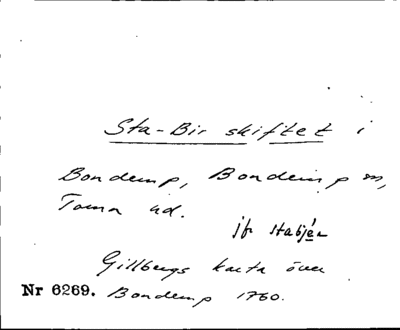 Sta-Bir skiftet i
Bondemp, Bondemp sn,
Toma hd.
jfr stabjér
Gillbergs karta över
Nr 6269. Bondemp 1760.